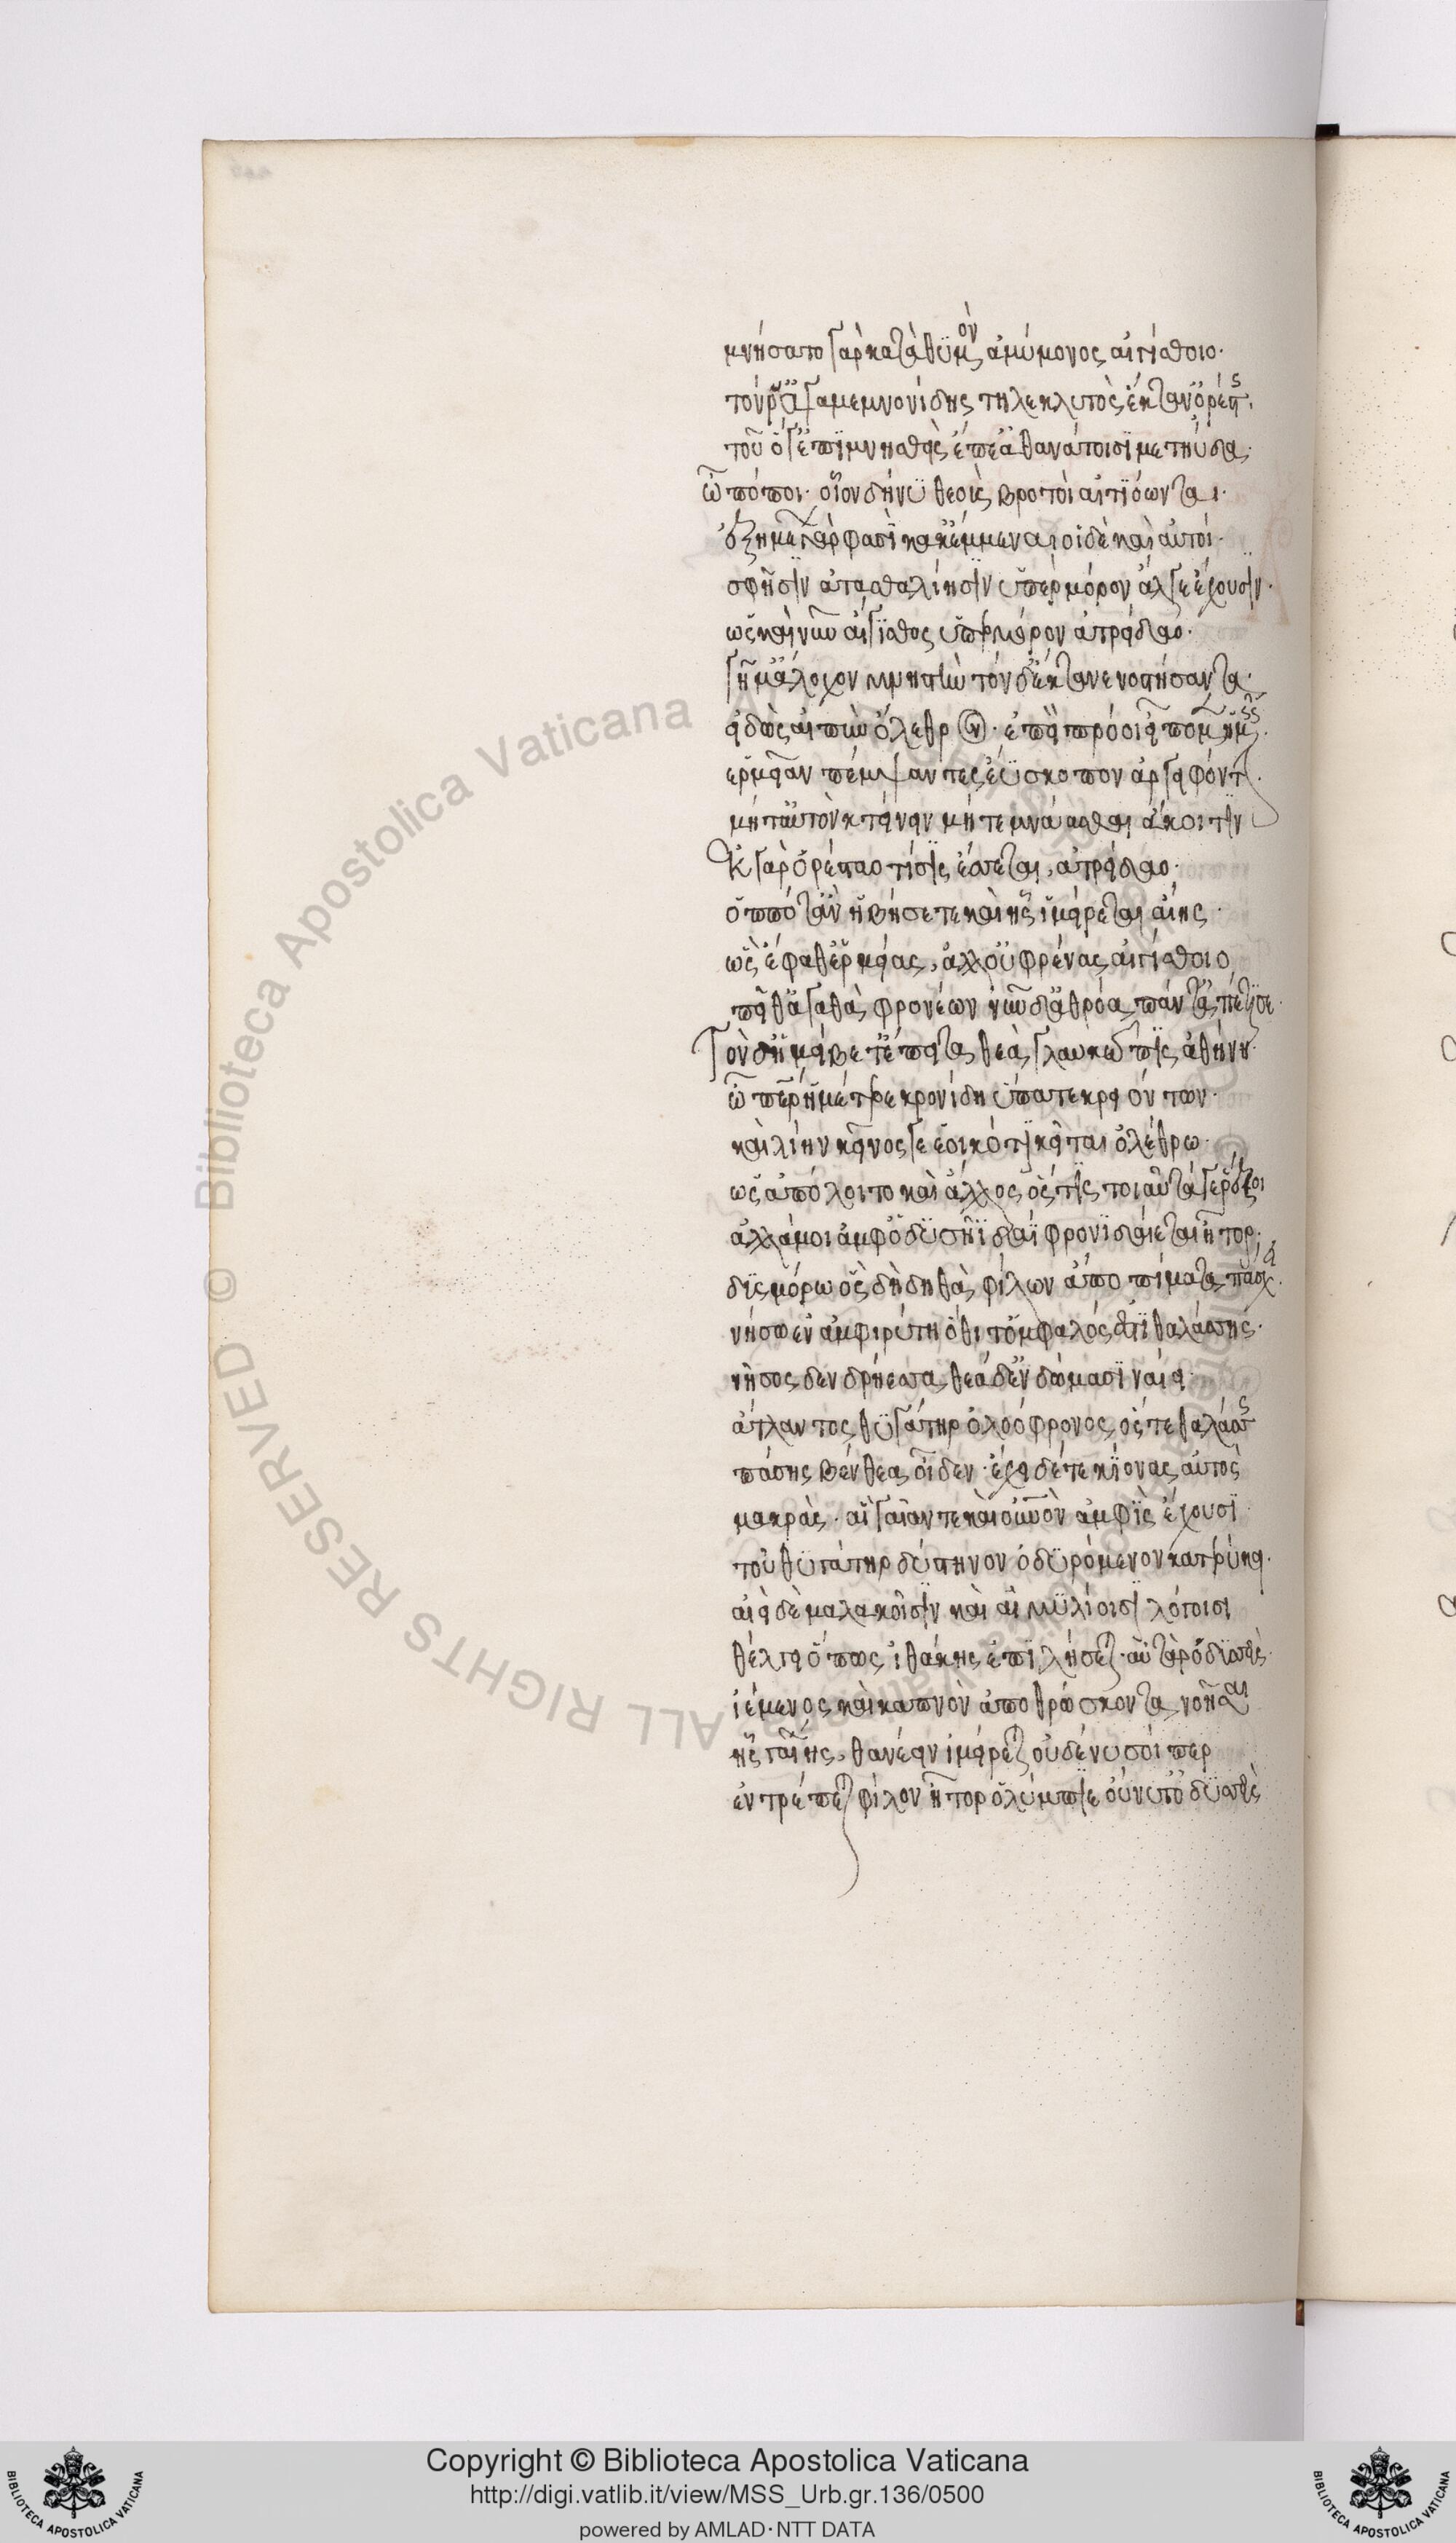 μνήσατο γὰρ κατὰ θυμὸν ἀμύμονος αἰγίσθοιο·
τόν ῥ' ἀγαμεμνονίδης τηλεκλυτὸς ἔκταν' ὀρέστης·
τοῦ ὅγ' ἐπιμνησθεὶς ἔπε' ἀθανάτοισι μετηύδα·
ὦ πόποι· οἷον δή νυ θεοὺς βροτοὶ αἰτιόωνται·
ἐξ ἡμέων γάρ φασι κάκ' ἔμμεναι οἱ δὲ καὶ αὐτοί·
σφῆσιν ἀτασθαλίησιν ὑπὲρ μόρον ἄλγε' ἔχουσιν·
ὡς καὶ νῦν αἴγισθος ὑπὲρ μόρον ἀτρείδαο·
γῆμ' ἄλοχον μνηστὴν τὸν δ' ἔκτανε νοστήσαντα·
εἰδὼς αἰπὺν ὄλεθρον· ἐπεὶ πρό οἱ εἴπομεν ἡμεῖς·
ἑρμείαν πέμψαντες ἐύσκοπον ἀργειφόντην·
μήτ' αὐτὸν κτείνειν μήτε μνάασθαι ἄκοιτιν
ἐκ γὰρ ὀρέσταο τίσις ἔσσεται, ἀτρείδαο·
ὁππότ' ἂν ἡβήσει τε καὶ ἧς ἱμείρεται αἴης·
ὣς ἔφαθ' ἑρμείας, ἀλλ' οὐ φρένας αἰγίσθοιο
πεῖθ' ἀγαθὰ φρονέων νῦν δ' ἀθρόα πάντ' ἀπέτισε·
Τὸν δ' ἠμείβετ' ἔπειτα θεὰ γλαυκῶπις ἀθήνη·
ὦ πάτερ ἡμέτερε κρονίδη ὕπατε κρειόντων·
καὶ λίην κεῖνος γε ἐοικότι κεῖται ὀλέθρω·
ὡς ἀπόλοιτο καὶ ἄλλος ὅς τις τοιαῦτά γε ῥέζοι
ἀλλά μοι ἀμφ' ὀδυσῆι δαΐφρονι δαίεται ἦτορ·
δυσμόρω ὃς δὴ δηθὰ φίλων ἄπο πήματα πάσχει·
νήσω ἐν ἀμφιρύτη ὅθι τ' ὀμφαλός ἐστι θαλάσσης·
νῆσος δενδρήεσσα θεὰ δ' ἐν δώμασι ναίει
ἄτλαντος θυγάτηρ ὀλοόφρονος ὅς τε θαλάσσης
πάσης βένθεα οἶδεν· ἔχει δέ τε κίονας αὐτὸς
μακρὰς· αἳ γαῖάν τε καὶ οὐρανὸν ἀμφὶς ἔχουσι
τοῦ θυγάτηρ δύστηνον ὀδυρόμενον κατερύκει·
αἰεὶ δὲ μαλακοῖσιν καὶ αἱμυλίοισι λόγοισι
θέλγει ὅπως ἰθάκης ἐπιλήσεται· αὐτὰρ ὀδυσσεὺς
ἱέμενος καὶ καπνὸν ἀποθρώσκοντα νοῆσαι
ἧς γαίης, θανέειν ἱμείρεται οὐδέ νυ σοί περ
ἐντρέπεται φίλον ἦτορ ὀλύμπιε οὔ νύ τ' ὀδυσσεὺς
Copyright © Biblioteca Apostolica Vaticana
http://digi.vatlib.it/view/MSS_Urb.gr.136/0500
powered by AMLAD·NTT DATA